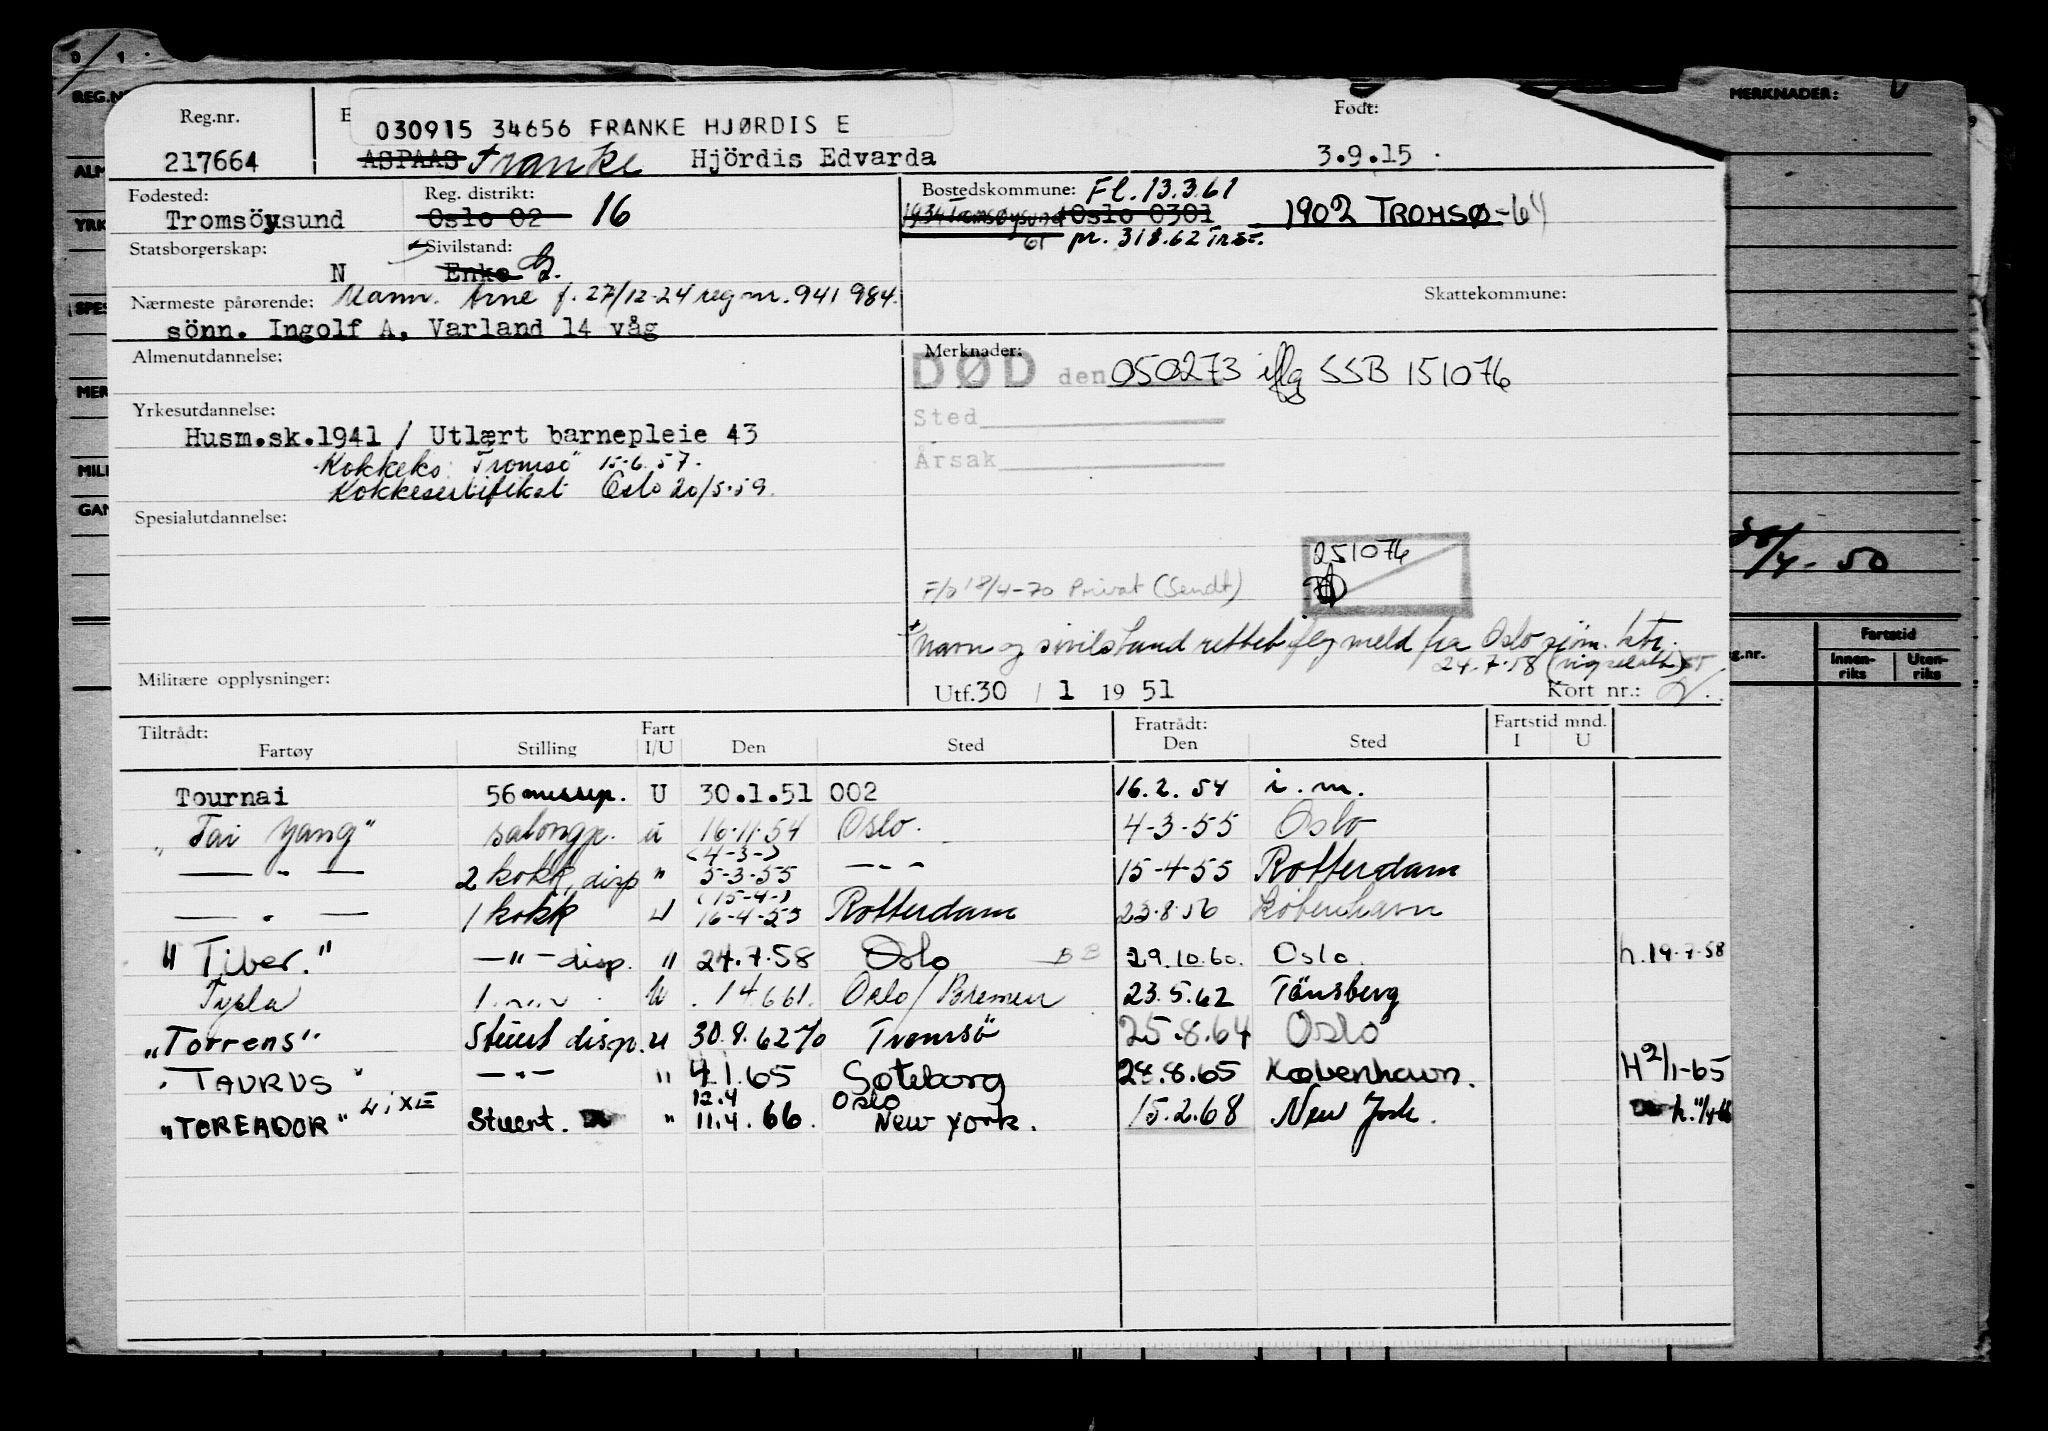 Reg.nr.
030915 34656 FRANKE HJØRDIS E
Født:
217664 ASPAAS Franke Hjördis Edvarda 3.9.15
Fødested: Reg. distrikt: Bostedskommune: Fl. 13.3.61
Tromsöysund Oslo 02 16 1934 Tromsøysund Oslo 0301 1902 TROMSØ-64
Statsborgerskap: Sivilstand: pr. 318.62 Trsø.
N Enke G.
Nærmeste pårørende: Mann. Arne f. 27/12-24 reg nr. 941 984. Skattekommune:
sönn. Ingolf A, Varland 14 våg
Almenutdannelse: Merknader:
DØD den 050273 iflg SSB 151076
Yrkesutdannelse: Sted
Husm.sk.1941 / Utlært barnepleie 43
Kokkeks. Tromsö 15.6.57. Årsak
Kokkesertifikat Oslo 20/5.59.
Spesialutdannelse:
251076
F/o 18/4-70 Privat (Sendt)
Navn og sivilstand rettet iflg meld fra Oslo sjøm. ktr.
24.7.58
Militære opplysninger: Utf. 30 / 1 19 51 Kort nr.:
Tiltrådt: Fart Fratrådt: Fartstid mnd.
Fartøy Stilling I/U Den Sted Den Sted I U
Tournai 56 messep. U 30.1.51 002 16.2.54 i.m.
"Tai Yang" salongp. u 16.11.54 Oslo. 4-3-55 Oslo
— " — 2 kokk, disp " (4-3-) 5-3-55 — " — 15-4-55 Rotterdam
— " — 1 kokk U (15-4-) 16-4-55 Rotterdam 23.8.56 København
"Tiber." — " — disp. " 24.7.58 Oslo BB 29.10.60. Oslo. h. 19.7.58
Tysla 1 U 14.6.61. Oslo/Bremen 23.5.62 Tönsberg
"Torrens" Stuert disp. u 30.8.62 Tromsö 25.8.64 Oslo
"TAURUS" — " — " 4.1.65 Gøteborg 28.8.65 København. H 2/1-65
"TOREADOR" Stuert. " 12.4 11.4.66. Oslo New York. 15.2.68 New York. h. 11/4-66
REG.N
ALM
YRK
SPES
MER
MILI
GAN
MERKNADER:
/4-50
g.nr.
Fartstid
Innen-riks Uten-riks